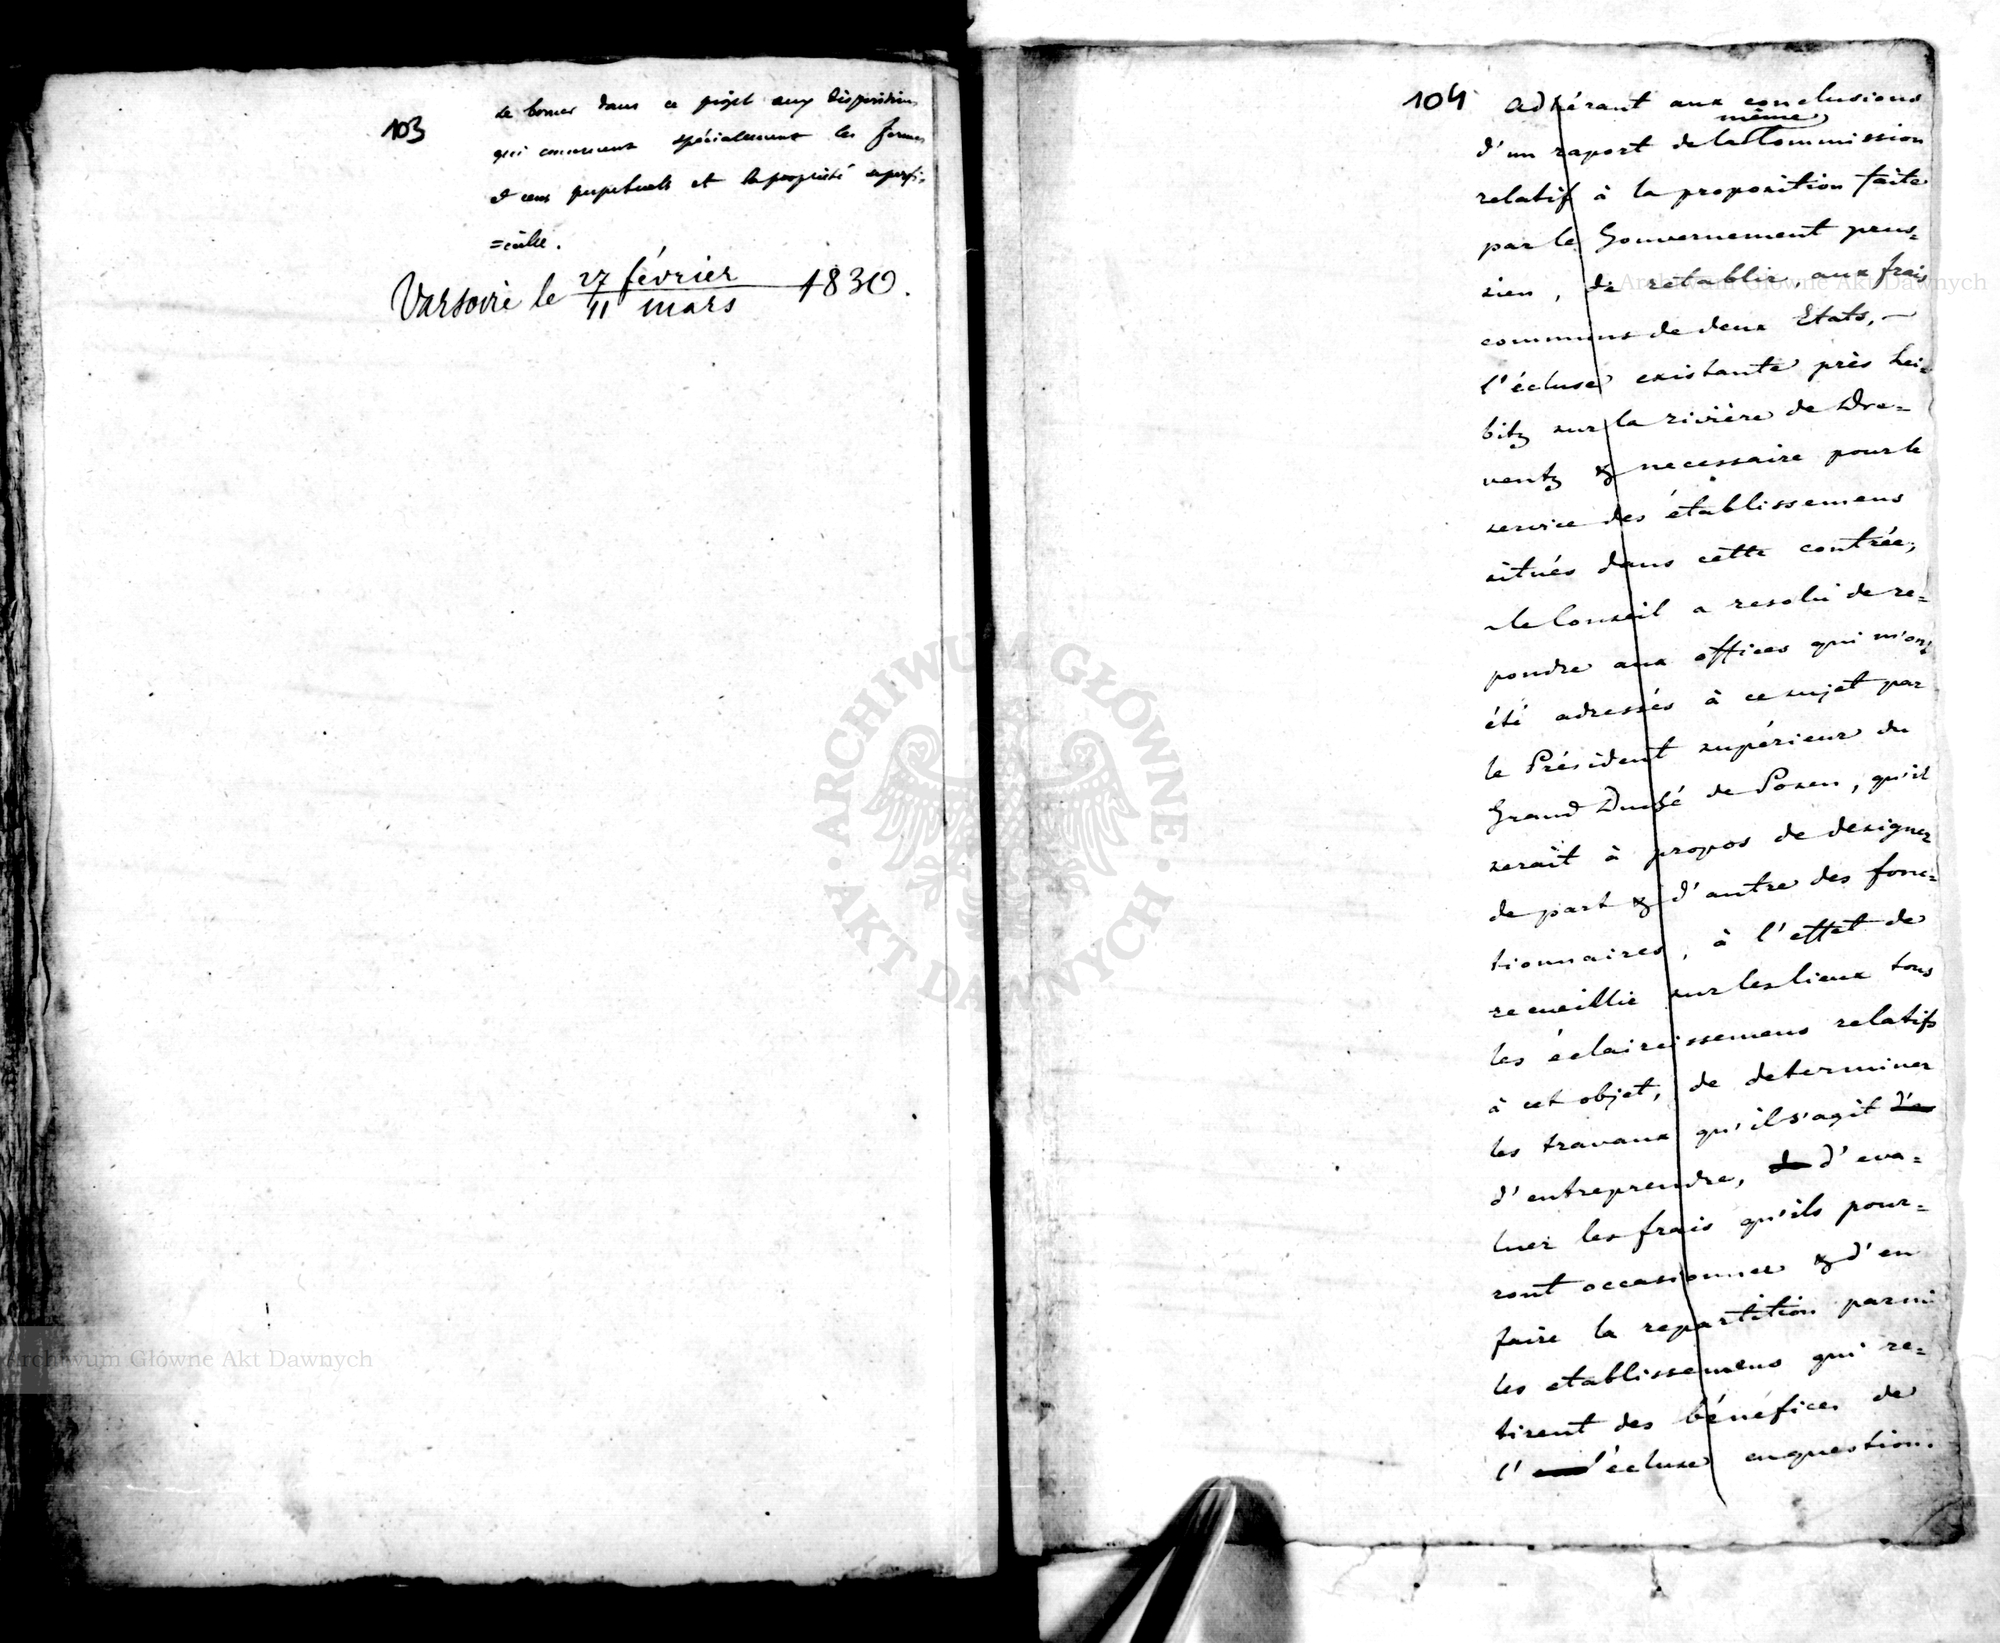 103
se borner dans ce projet aux dispositions
qui concernent spécialement les fermes
et cens perpetuels et la propriété superfi-
=cielle.
Varsovie le 27 février / 11 mars 1830.
104
Adhérant aux conclusions
même
d'un raport de la Commission
relatif à la proposition faite
par le Gouvernement prus=
sien, de retablir, aux frais
communs de deux Etats, —
l'écluse existante près Lei=
bitz sur la rivière de Dre=
ventz & necessaire pour le
service des établissemens
situés dans cette contrée;
le Conseil a resolu de re=
pondre aux offices qui m'ont
été adressés à ce sujet par
le Président supérieur du
Grand Duché de Posen, qu'il
serait à propos de designer
de part & d'autre des fonc=
tionnaires, à l'effet de
recueillir sur les lieux tous
les éclaircissemens relatifs
à cet objet, de determiner
les travaux qu'il s'agit
d'entreprendre, d'eva=
luer les frais qu'ils pour=
ront occasionner & d'en
faire la repartition parmi
les etablissemens qui re=
tirent des bénéfices de
l'écluse en question.
Archiwum Główne Akt Dawnych
Archiwum Główne Akt Dawnych
ARCHIWUM GŁÓWNE · AKT DAWNYCH ·